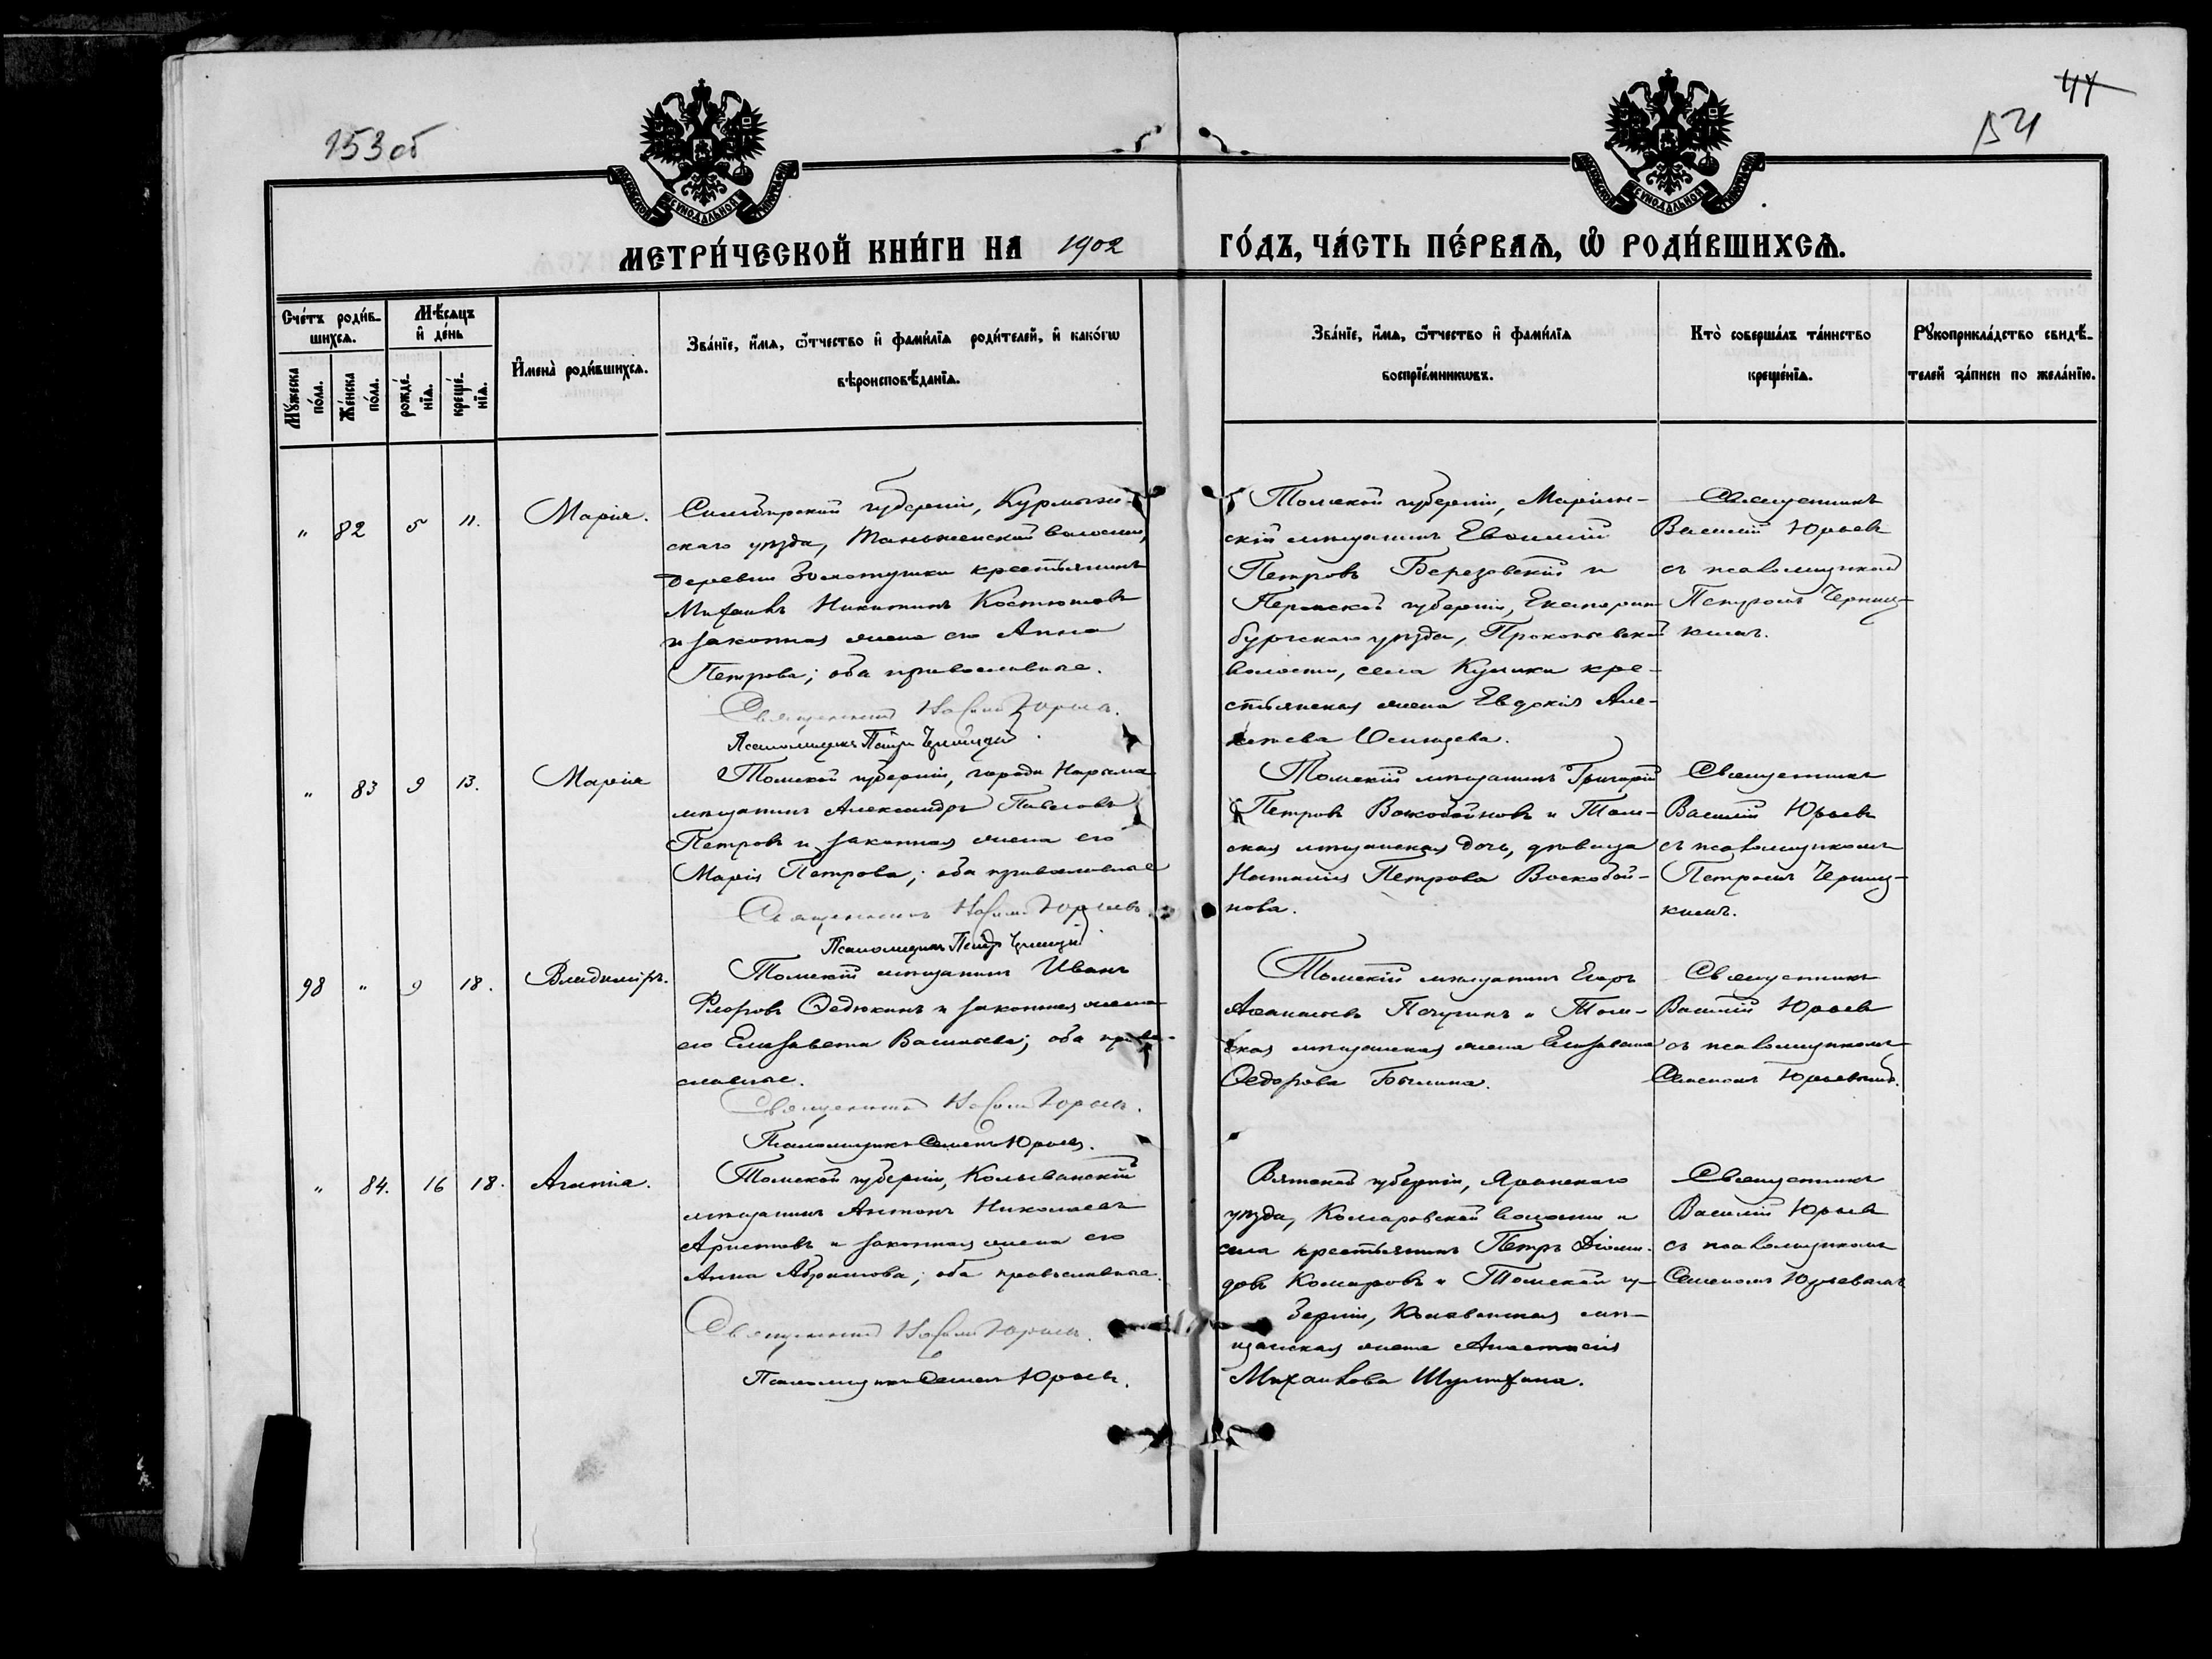 153 об
47
154
МЕТРИ́ЧЕСКОЙ КНИ́ГИ НА 1902 ГО́ДЪ, ЧА́СТЬ ПЕ́РВАЯ, Ѡ РОДИ́ВШИХСЯ.
Сче́тъ роди́в-
шихся.
Мѣ́сяцъ
и де́нь
Му́жеска
по́ла.
Же́нска
по́ла.
рожде́-
нїя.
креще́-
нїя.
И҆мена̀ роди́вшихся.
Зва́нїе, и҆́мя, ѻ҆́тчество и҆ фами́лїя роди́телей, и҆ како́гѡ
вѣроисповѣ́данїя.
Зва́нїе, и҆́мя, ѻ҆́тчество и҆ фами́лїя
воспрїе́мникѡвъ.
Кто̀ соверша́лъ та́инство
креще́нїя.
Рꙋкоприкла́дство свидѣ́-
телей за́писи по жела́нїю.
" 82 5 11. Марія.
Симбирской губерніи, Курмыш-
скаго уѣзда, волости,
деревни крестьянинъ
Михаилъ Никитинъ
и законная жена его Анна
Петрова; оба православные.
Священникъ Василій Юрьевъ.
Псаломщикъ Петръ Черницкій.
Томской губерніи, Маріин-
скій мѣщанинъ Евѳимій
Петровъ Березовскій и
Пермской губерніи, Екатерин-
бургскаго уѣзда, Прокопьевской
волости, села кре-
стьянская жена Евдокія Але-
ксѣева
Священникъ
Василій Юрьевъ
съ псаломщикомъ
Петромъ Черниц-
кимъ.
" 83 9 13. Марія
Томской губерніи, города Нарыма
мѣщанинъ Александръ Павловъ
Петровъ и законная жена его
Марія Петрова; оба православные
Священникъ Василій Юрьевъ.
Псаломщикъ Петръ Черницкій.
Томскій мѣщанинъ Григорій
Петровъ Воскобойновъ и Том-
ская мѣщанская дочь, дѣвица
Наталія Петрова Воскобой-
нова.
Священникъ
Василій Юрьевъ
съ псаломщикомъ
Петромъ Черниц-
кимъ.
98 " 9 18. Владиміръ.
Томскій мѣщанинъ Иванъ
Флоровъ Ѳедюкинъ и законная жена
его Елизавета Васильева; оба право-
славные.
Священникъ Василій Юрьевъ.
Псаломщикъ Семенъ Юрьевъ.
Томскій мѣщанинъ Егоръ
Аѳанасьевъ Пичугинъ и Том-
ская мѣщанская жена Елизавета
Ѳедорова Былина.
Священникъ
Василій Юрьевъ
съ псаломщикомъ
Семеномъ Юрьевымъ.
" 84. 16 18. Агаѳіа.
Томской губерніи, Колыванскій
мѣщанинъ Антонъ Николаевъ
Аристовъ и законная жена его
Анна Абрамова; оба православные.
Священникъ Василій Юрьевъ.
Псаломщикъ Семенъ Юрьевъ.
Вятской губерніи, Яранскаго
уѣзда, Комаровской волости и
села крестьянинъ Петръ Діоми-
довъ Комаровъ и Томской гу-
берніи, Колыванская мѣ-
щанская жена Анастасія
Михаилова Шумихина.
Священникъ
Василій Юрьевъ
съ псаломщикомъ
Семеномъ Юрьевымъ